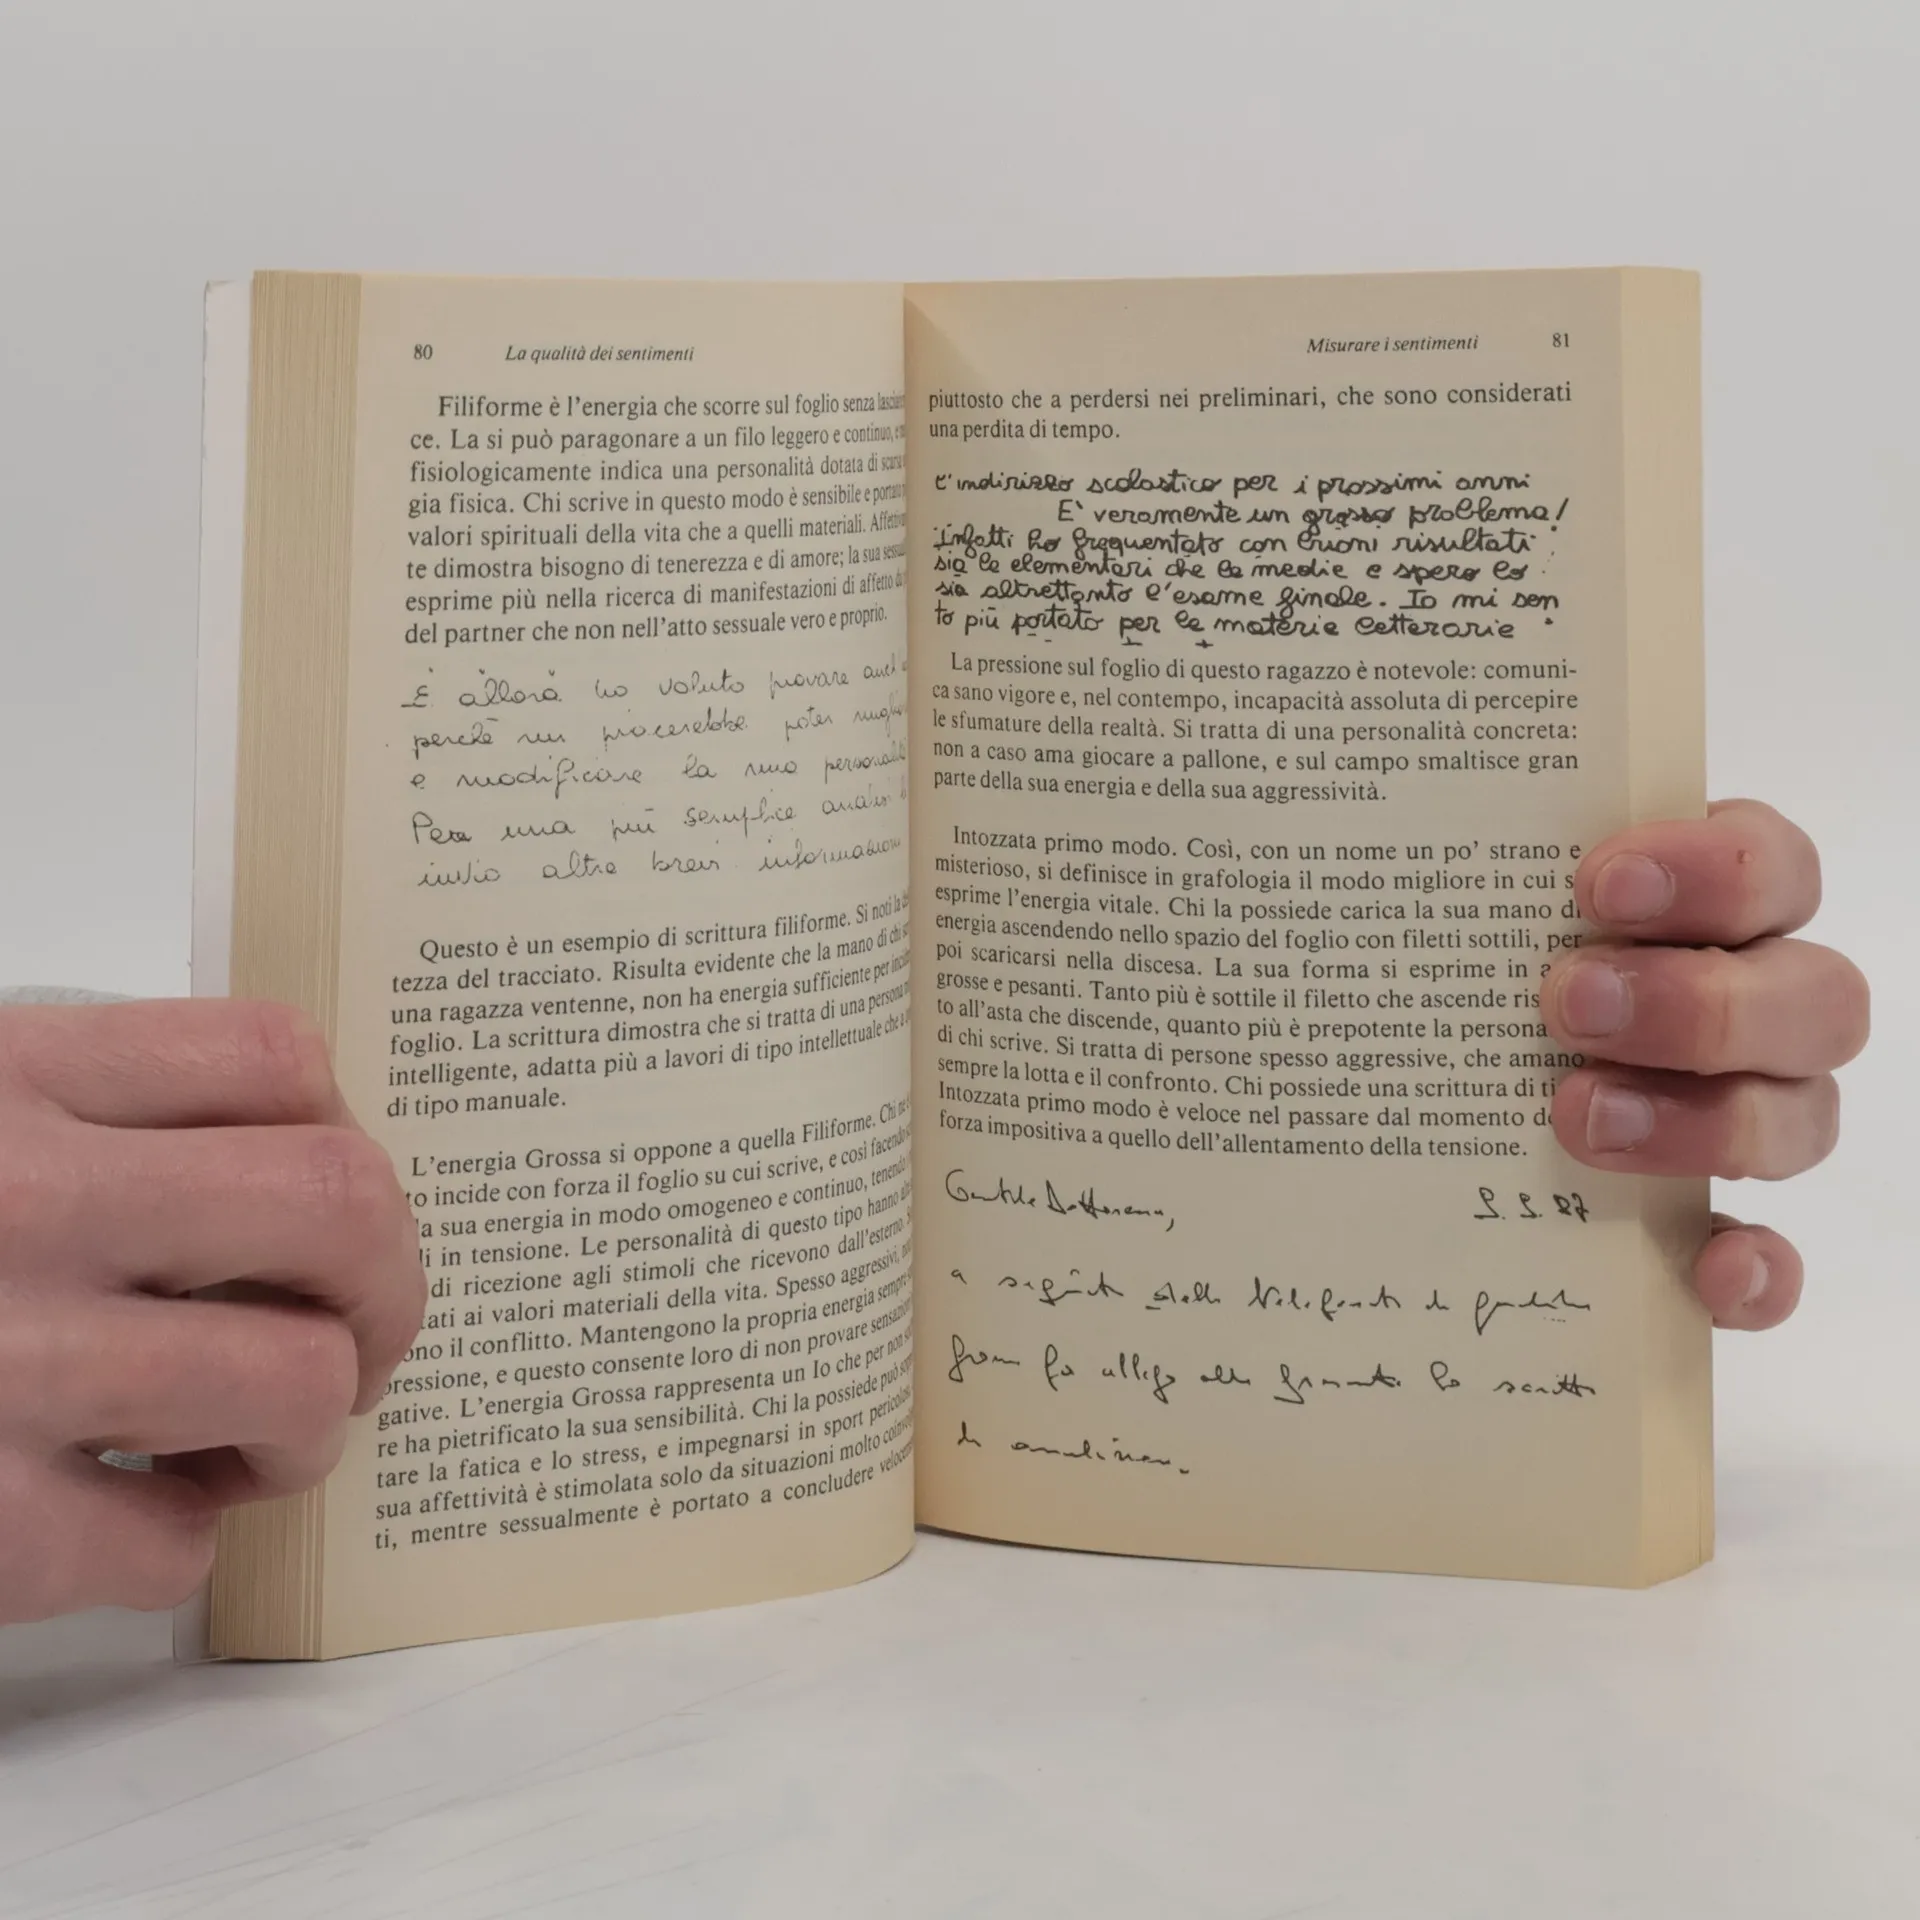 80 La qualità dei sentimenti
Filiforme è l'energia che scorre sul foglio senza
ce. La si può paragonare a un filo leggero e continuo,
fisiologicamente indica una personalità dotata di
gia fisica. Chi scrive in questo modo è sensibile e
valori spirituali della vita che a quelli materiali.
te dimostra bisogno di tenerezza e di amore; la sua
esprime più nella ricerca di manifestazioni di affetto
del partner che non nell'atto sessuale vero e proprio.
E allora ho voluto provare
perchè mi piacerebbe poter
e modificare la mia
Per una più semplice analisi
invio altre brevi informazioni
Questo è un esempio di scrittura filiforme. Si noti la
tezza del tracciato. Risulta evidente che la mano di chi
una ragazza ventenne, non ha energia sufficiente per
foglio. La scrittura dimostra che si tratta di una persona
intelligente, adatta più a lavori di tipo intellettuale che a
di tipo manuale.
L'energia Grossa si oppone a quella Filiforme. Chi ne
to incide con forza il foglio su cui scrive, e così facendo
la sua energia in modo omogeneo e continuo, tenendo
li in tensione. Le personalità di questo tipo hanno
di ricezione agli stimoli che ricevono dall'esterno.
tati ai valori materiali della vita. Spesso aggressivi,
ono il conflitto. Mantengono la propria energia sempre
pressione, e questo consente loro di non provare
gative. L'energia Grossa rappresenta un Io che per non
re ha pietrificato la sua sensibilità. Chi la possiede può
tare la fatica e lo stress, e impegnarsi in sport
sua affettività è stimolata solo da situazioni molto
ti, mentre sessualmente è portato a concludere
Misurare i sentimenti 81
piuttosto che a perdersi nei preliminari, che sono considerati
una perdita di tempo.
L'indirizzo scolastico per i prossimi anni
E' veramente un grosso problema!
Infatti ho frequentato con buoni risultati
sia le elementari che le medie e spero lo
sia altrettanto l'esame finale. Io mi sen
to più portato per le materie letterarie
La pressione sul foglio di questo ragazzo è notevole: comuni-
ca sano vigore e, nel contempo, incapacità assoluta di percepire
le sfumature della realtà. Si tratta di una personalità concreta:
non a caso ama giocare a pallone, e sul campo smaltisce gran
parte della sua energia e della sua aggressività.
Intozzata primo modo. Così, con un nome un po' strano e
misterioso, si definisce in grafologia il modo migliore in cui s
esprime l'energia vitale. Chi la possiede carica la sua mano di
energia ascendendo nello spazio del foglio con filetti sottili, per
poi scaricarsi nella discesa. La sua forma si esprime in a
grosse e pesanti. Tanto più è sottile il filetto che ascende ris
to all'asta che discende, quanto più è prepotente la persona
di chi scrive. Si tratta di persone spesso aggressive, che amano
sempre la lotta e il confronto. Chi possiede una scrittura di ti
Intozzata primo modo è veloce nel passare dal momento de
forza impositiva a quello dell'allentamento della tensione.
Gentile Dottoressa,
a seguito della telefonata di
allego alla presente lo scritto
da analizzare.